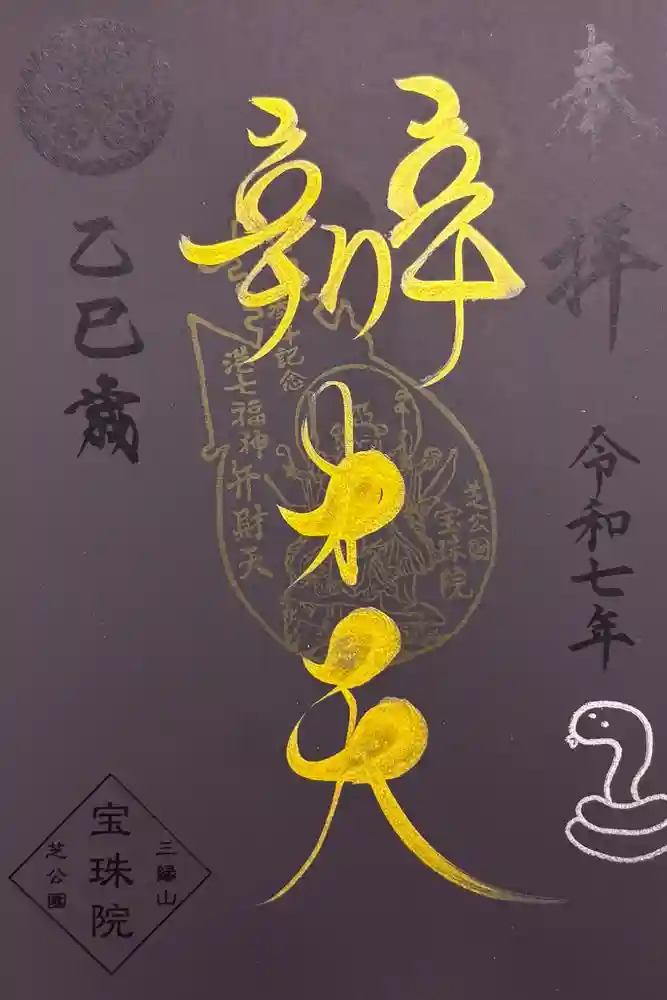 奉拝
令和七年
辨才天
港七福神弁財天
芝公園
宝珠院
乙巳歳
三縁山
宝珠院
芝公園